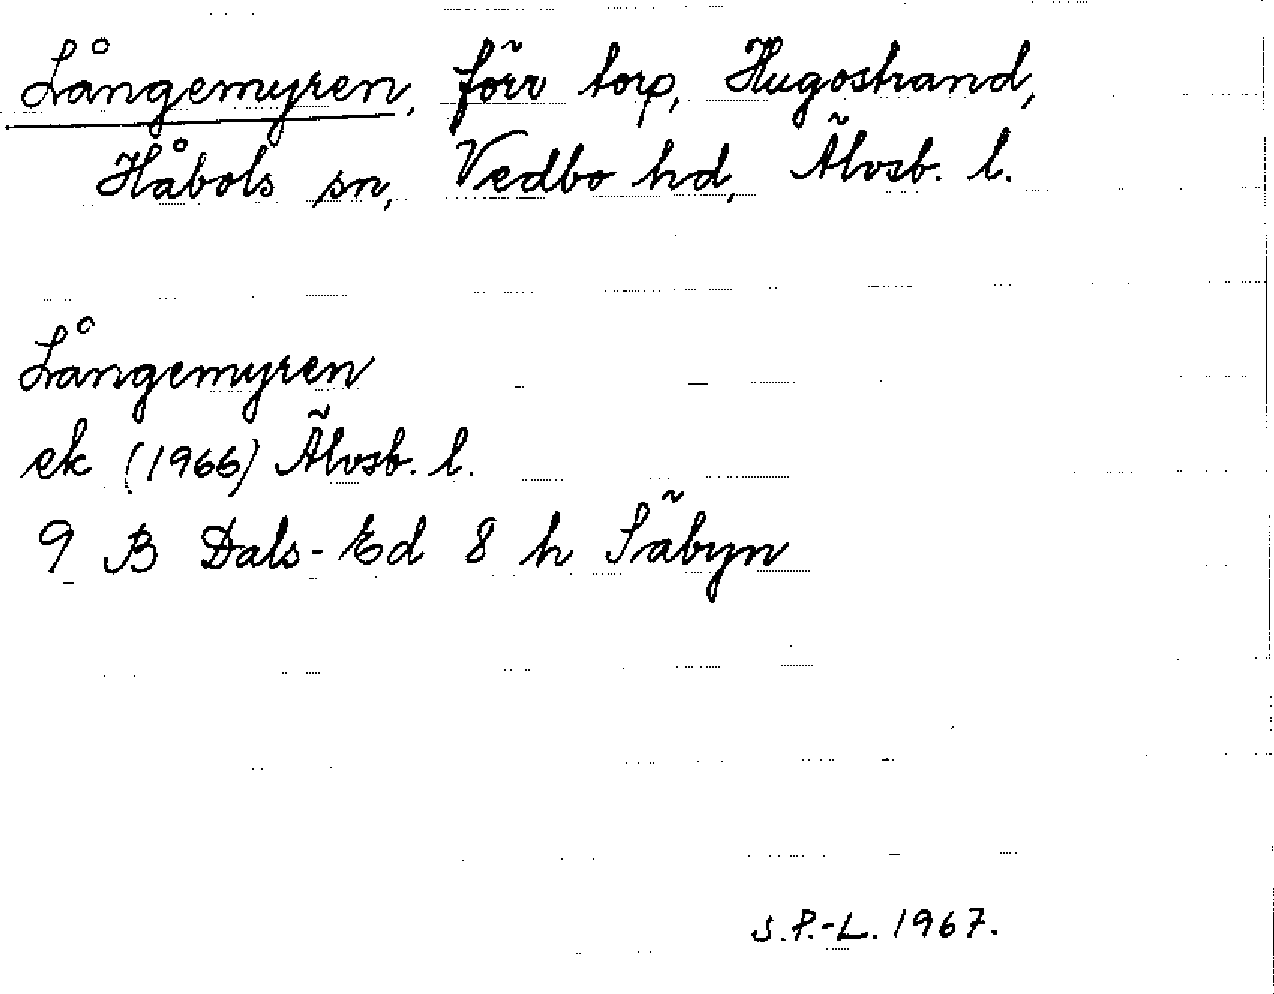 Långemyren, förr torp, Hugostrand,
Håbols sn, Vedbo hd, Älvsb. l.
Långemyren
ek (1966) Älvsb. l.
9 B Dals-Ed 8 h Säbyn
S.P.-L. 1967.